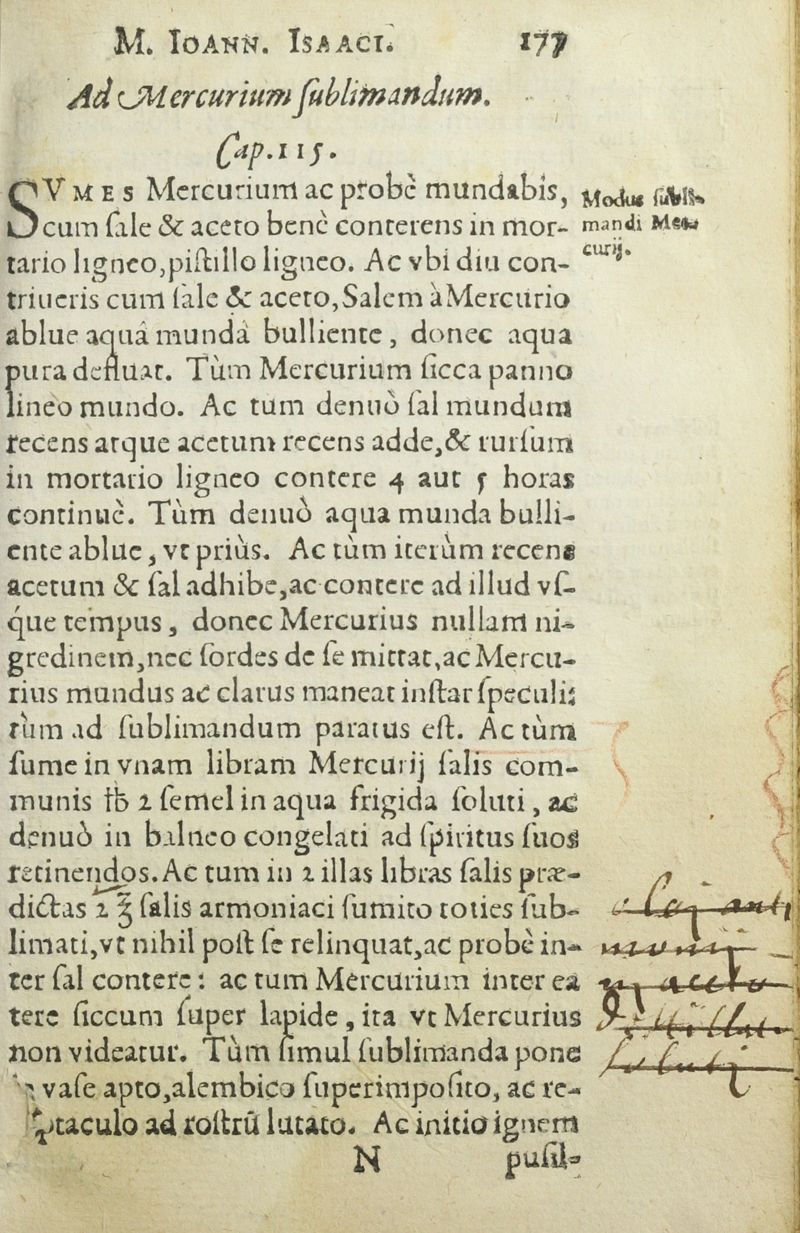 M. IOANN. ISAACI. 177
Ad Mercurium ſublimandum.
Cap. 115.
SVMES Mercurium ac probè mundabis,
cum ſale & aceto benè conterens in mor-
tario ligneo, piſtillo ligneo. Ac vbi diu con-
triueris cum ſale & aceto, Salem à Mercurio
ablue aquâ mundâ bulliente, donec aqua
pura defluat. Tùm Mercurium ſicca panno
lineo mundo. Ac tum denuò ſal mundum
recens atque acetum recens adde, & rurſum
in mortario ligneo contere 4 aut 5 horas
continuè. Tùm denuò aqua munda bulli-
ente ablue, vt priùs. Ac tùm iterùm recens
acetum & ſal adhibe, ac contere ad illud vſ-
que tempus, donec Mercurius nullam ni-
gredinem, nec ſordes de ſe mittat, ac Mercu-
rius mundus ac clarus maneat inſtar ſpeculi;
tùm ad ſublimandum paratus eſt. Ac tùm
ſume in vnam libram Mercurij ſalis com-
munis ℔ 2 ſemel in aqua frigida ſoluti, ac
denuò in balneo congelati ad ſpiritus ſuos
retinendos. Ac tum in 2 illas libras ſalis præ-
dictas 2 ℥ ſalis armoniaci ſumito toties ſub-
limati, vt nihil poſt ſe relinquat, ac probè in-
ter ſal contere: ac tum Mercurium inter ea
tere ſiccum ſuper lapide, ita vt Mercurius
non videatur. Tùm ſimul ſublimanda pone
vaſe apto, alembico ſuperimpoſito, ac re-
ptaculo ad roſtrū lutato. Ac initio ignem
N puſil-
Modus ſubli-
mandi Mer-
curij.